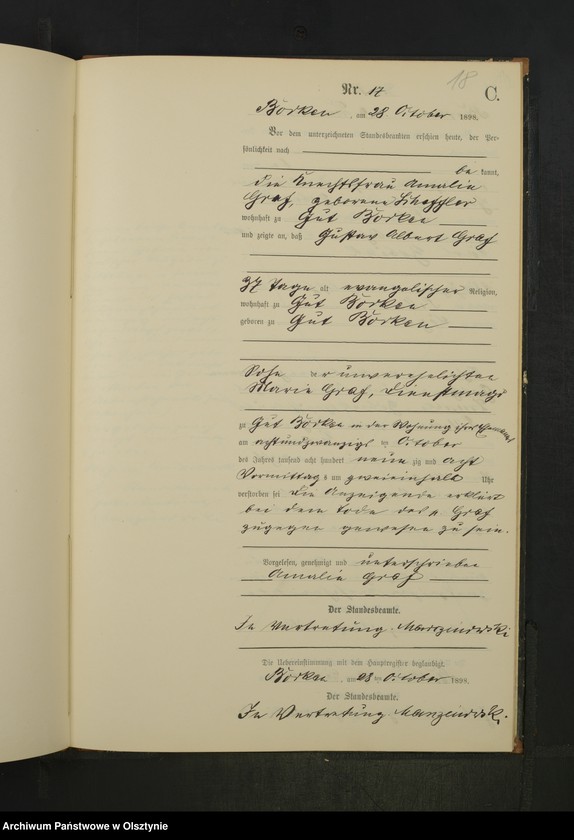 18
Nr. 17
C.
Borken, am 28 October 1898.
Vor dem unterzeichneten Standesbeamten erschien heute, der Per-
sönlichkeit nach
be kannt,
die Knechtsfrau Amalie
Graf, geborene Scheffler
wohnhaft zu Gut Borken
und zeigte an, daß Gustav Albert Graf
37 Tage alt evangelischer Religion,
wohnhaft zu Gut Borken
geboren zu Gut Borken
Sohn der unverehelichten
Marie Graf, Dienstmagd
zu Gut Borken in der Wohnung ihres
am achtundzwanzigsten October
des Jahres tausend acht hundert neunzig und acht
Vormittags um zweieinhalb Uhr
verstorben sei die Anzeigende erklärt
bei dem Tode des p. Graf
zugegen gewesen zu sein.
Vorgelesen, genehmigt und unterschrieben
Amalie Graf
Der Standesbeamte.
In Vertretung
Die Uebereinstimmung mit dem Hauptregister beglaubigt.
Borken, am 28 ten October 1898.
Der Standesbeamte.
In Vertretung
Archiwum Państwowe w Olsztynie